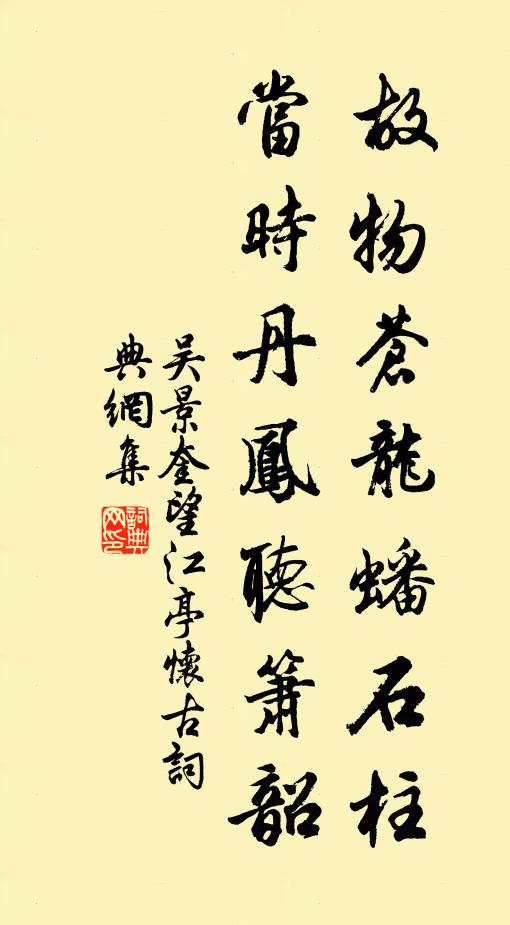 故物蒼龍蟠石柱
當時丹鳳聽簫韶
吴景奎望江亭懷古詞
典網集
詞典网印